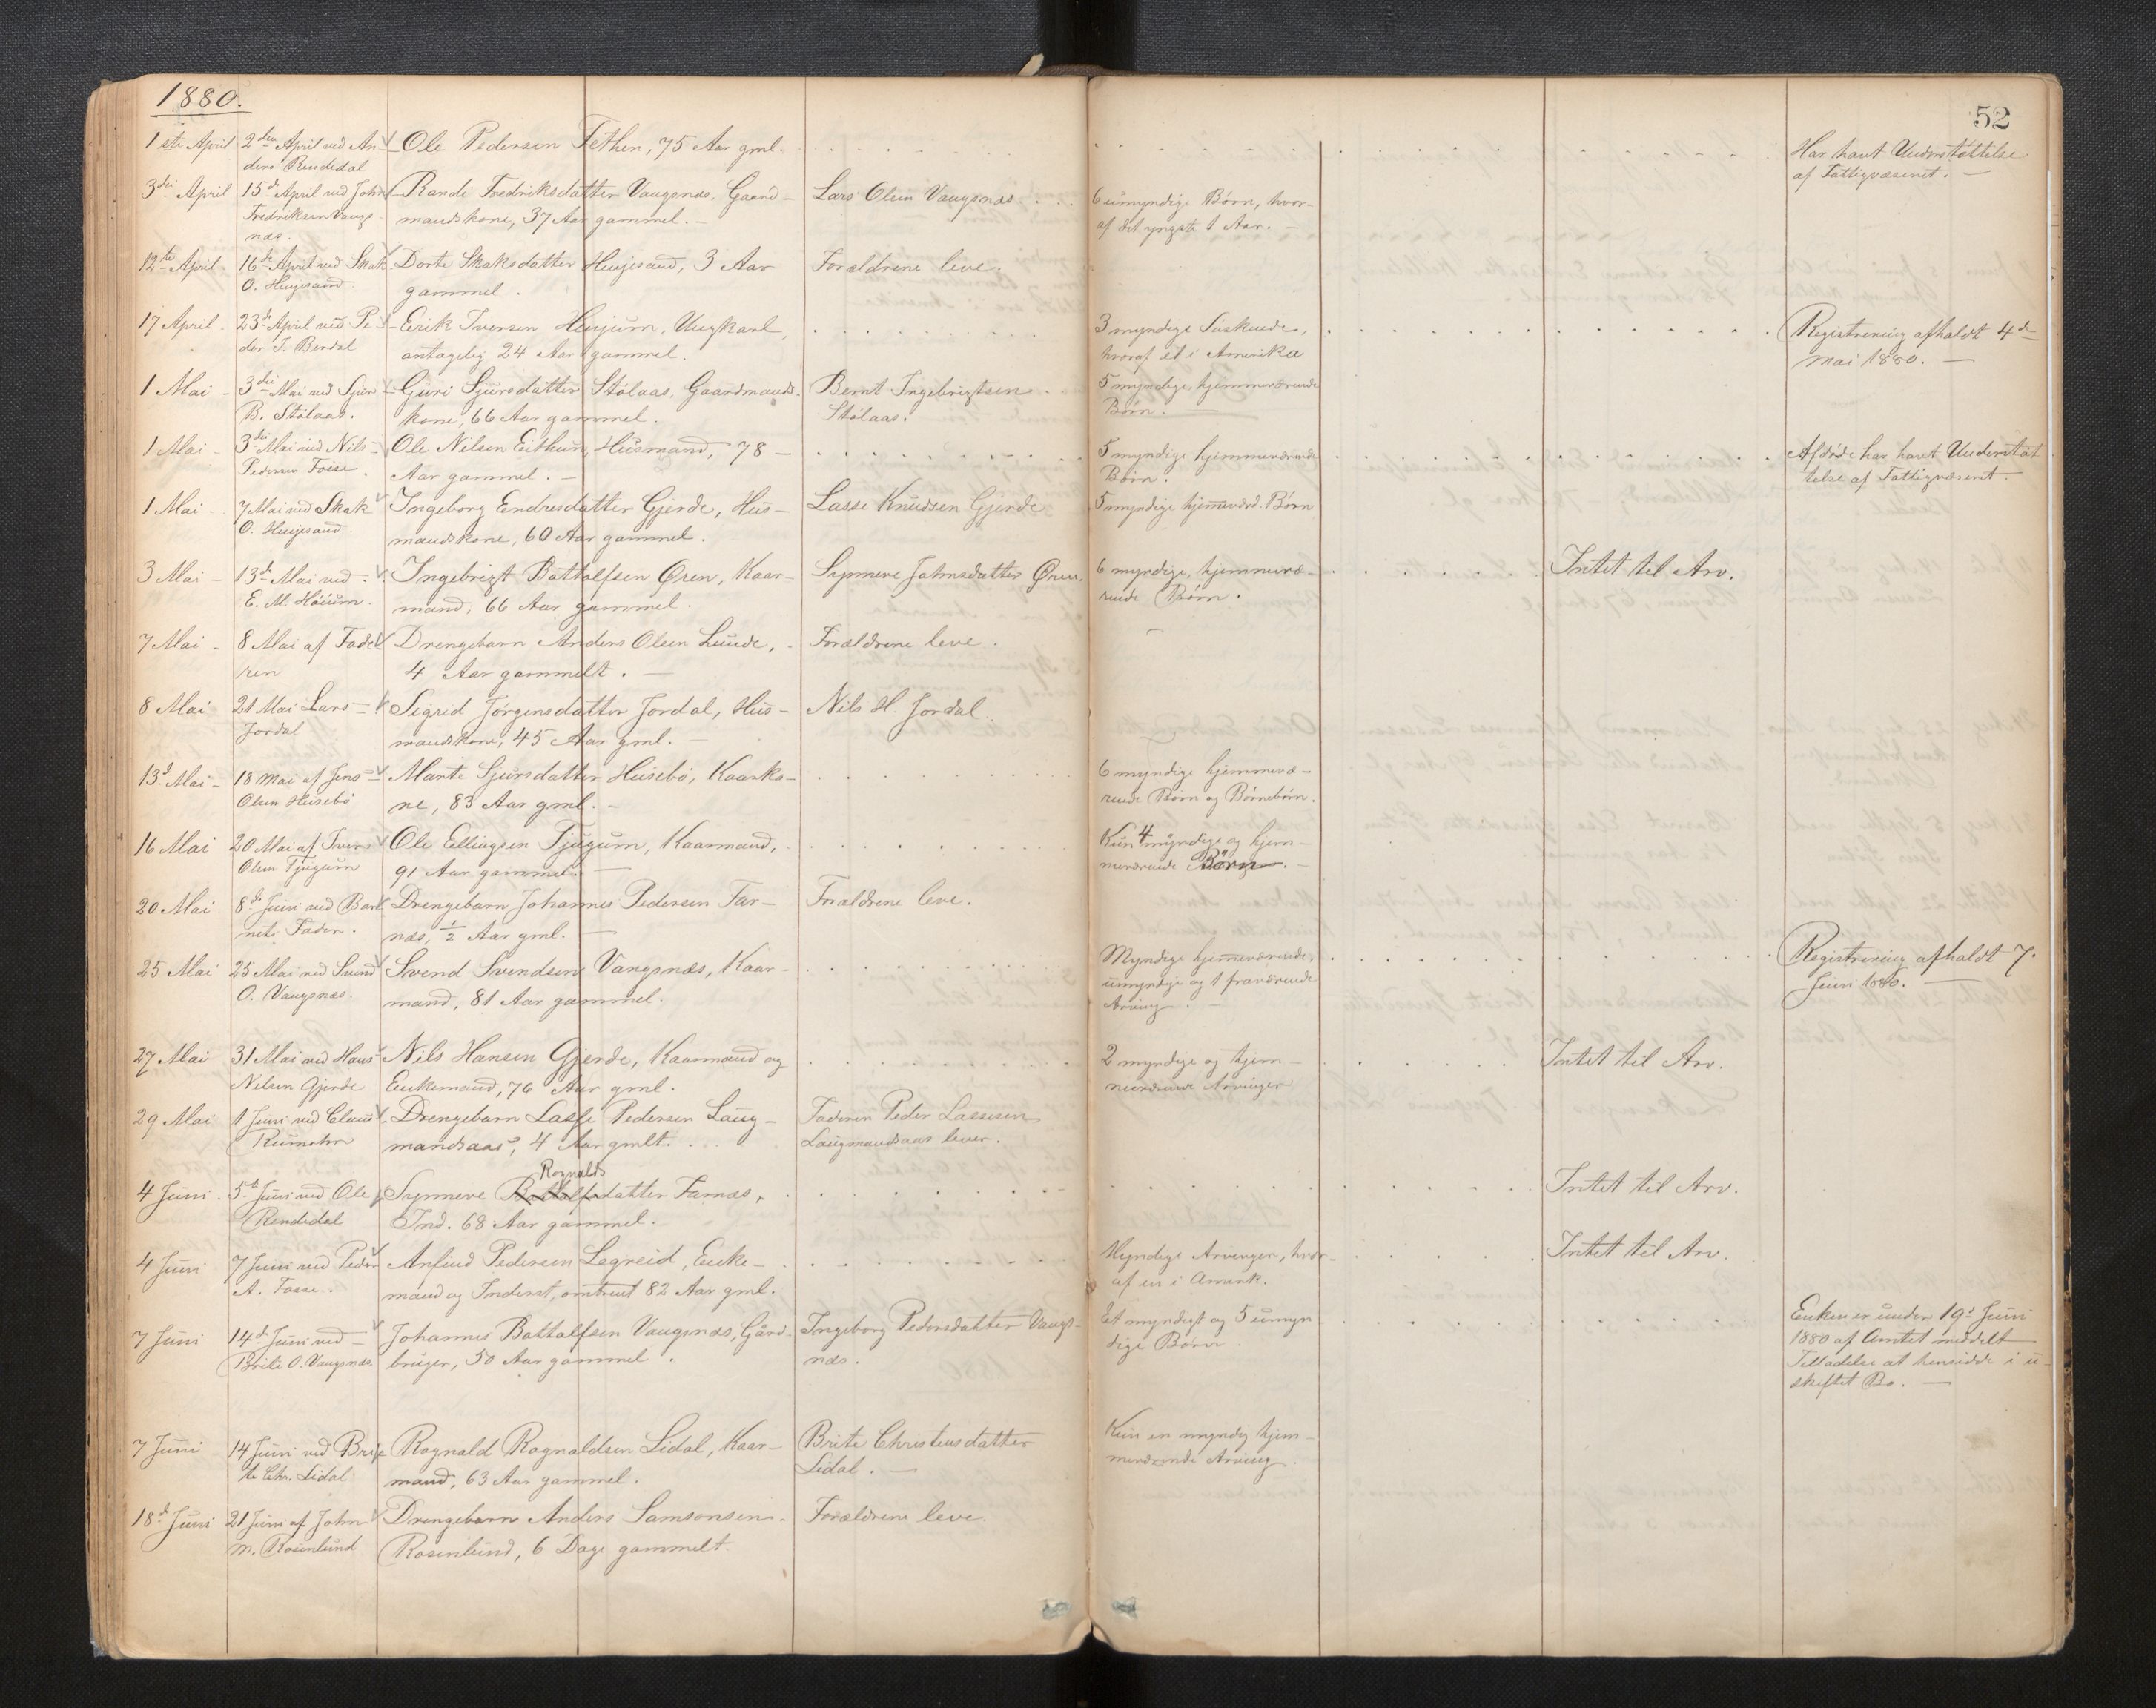 1880.
52
1ste April 2den April ved An- Ole Pedersen Fethen, 75 Aar gml. Har havt Understøttelse
ders Rendedal af Fattigvæsenet.
3die April 15de April ved John Randi Fredriksdatter Vangsnæs, Gaard- Lars Olsen Vangsnæs 6 umyndige Børn, hvor-
Fredriksen Vangs- mandskone, 37 Aar gammel. af det yngste 1 Aar.
næs.
12te April 16de April ved Skak Dorte Skaksdatter Henjesand, 3 Aar Forældrene leve.
O. Henjesand gammel.
17 April 23de April ved Pe- Erik Iversen Henjum, Ungkarl, 3 myndige Søskende, Registrering afholdt 4de
der J. Bendal antagelig 24 Aar gammel. hvoraf et i Amerika Mai 1880.
1 Mai 3die Mai ved Sjur Guri Sjursdatter Stølaas, Gaardmands- Bernt Ingebrigtsen 5 myndige hjemmeværende
B. Stølaas. kone, 66 Aar gammel. Stølaas. Børn.
1 Mai 3die Mai ved Nils Ole Nilsen Eithun, Husmand, 78 5 myndige hjemmeværende Afdøde har havet Understøt
Pedersen Fosse Aar gammel. Børn. telse af Fattigvæsenet.
1 Mai 7 Mai ved Skak Ingeborg Endresdatter Gjerde, Hus- Lasse Knudsen Gjerde 5 myndige hjemmeværd. Børn
O. Henjesand mandskone, 60 Aar gammel.
3 Mai 13de Mai ved Ingebrigt Bottolfsen Øren, Kaar- Synneve Johnsdatter Øren. 6 myndige, hjemmevæ- Intet til Arv.
E. M. Høium. mand, 66 Aar gammel. rende Børn.
7 Mai 8 Mai af Fade Drengebarn Anders Olsen Lunde, Forældrene leve.
ren 4 Aar gammelt.
8 Mai 21 Mai Lars Sigrid Jørgensdatter Jordal, Hus- Nils H. Jordal
Jordal mandskone, 45 Aar gml.
13de Mai 18 Mai af Jens Marte Sjursdatter Husebø, Kaarko- 6 myndige hjemmevæ-
Olsen Husebø ne, 83 Aar gml. rende Børn og Børnebørn.
16 Mai 20 Mai af Iver Ole Ellingsen Tjugum, Kaarmand, Kun 4 myndige og hjem-
Olsen Tjugum 91 Aar gammel. meværende Børn.
20 Mai 8de Juni ved Bar Drengebarn Johannes Pedersen Far- Forældrene leve.
nets Fader. næs, ½ Aar gml.
25 Mai 25 Mai ved Svend Svend Svendsen Vangsnæs, Kaar- Myndige hjemmeværende, Registrering afholdt 7.
O. Vangsnæs. mand, 81 Aar gammel. umyndige og 1 fraværende Juni 1880.
Arving.
27 Mai 31 Mai ved Hans Nils Hansen Gjerde, Kaarmand og 2 myndige og hjem- Intet til Arv.
Nilsen Gjerde Enkemand, 76 Aar gml. meværende Arvinger
29 Mai 1 Juni ved Claus Drengebarn Lasse Pedersen Laug- Faderen Peder Lassesen
Rumohr mandsaas, 4 Aar gmlt. Laugmandsaas lever.
Rognalds
4 Juni 5te Juni ved Ole Synneve Bottolfsdatter Farnæs, Intet til Arv.
Rendedal Ind. 68 Aar gammel.
4 Juni 7 Juni ved Peder Anfind Pedersen Legreid, Enke- Myndige Arvinger, hvor- Intet til Arv.
A. Fosse. mand og Inderst, omtrent 82 Aar gml. af en i Amerik.
7 Juni 14de Juni ved Johannes Bottolfsen Vangsnæs, Gård- Ingeborg Pedersdatter Vangs- Et myndigt og 5 umyn- Enken er under 19de Juni
Brite O. Vangsnæs bruger, 50 Aar gammel. næs. dige Børn 1880 af Amtet meddelt
Tilladelse at hensidde i u-
skiftet Bo.
7 Juni 14 Juni ved Bri Rognald Rognaldsen Lidal, Kaar- Brite Christensdatter Kun en myndig hjem-
te Chr. Lidal mand, 63 Aar gammel. Lidal. meværende Arving.
18de Juni 21 Juni af John Drengebarn Anders Samsonsen Forældrene leve.
M. Rosenlund Rosenlund, 6 Dage gammelt.